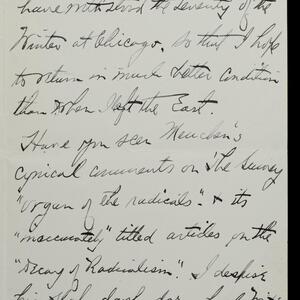 have withstood the severity of the
Winter at Chicago, so that I hope
to return in much better condition
than when I left the East.
Have you seen Mencken's
cynical comments on The Survey
"organ of the radicals" & its
"inaccurately" titled articles on the
"Decay of Radicalism". I despise
his